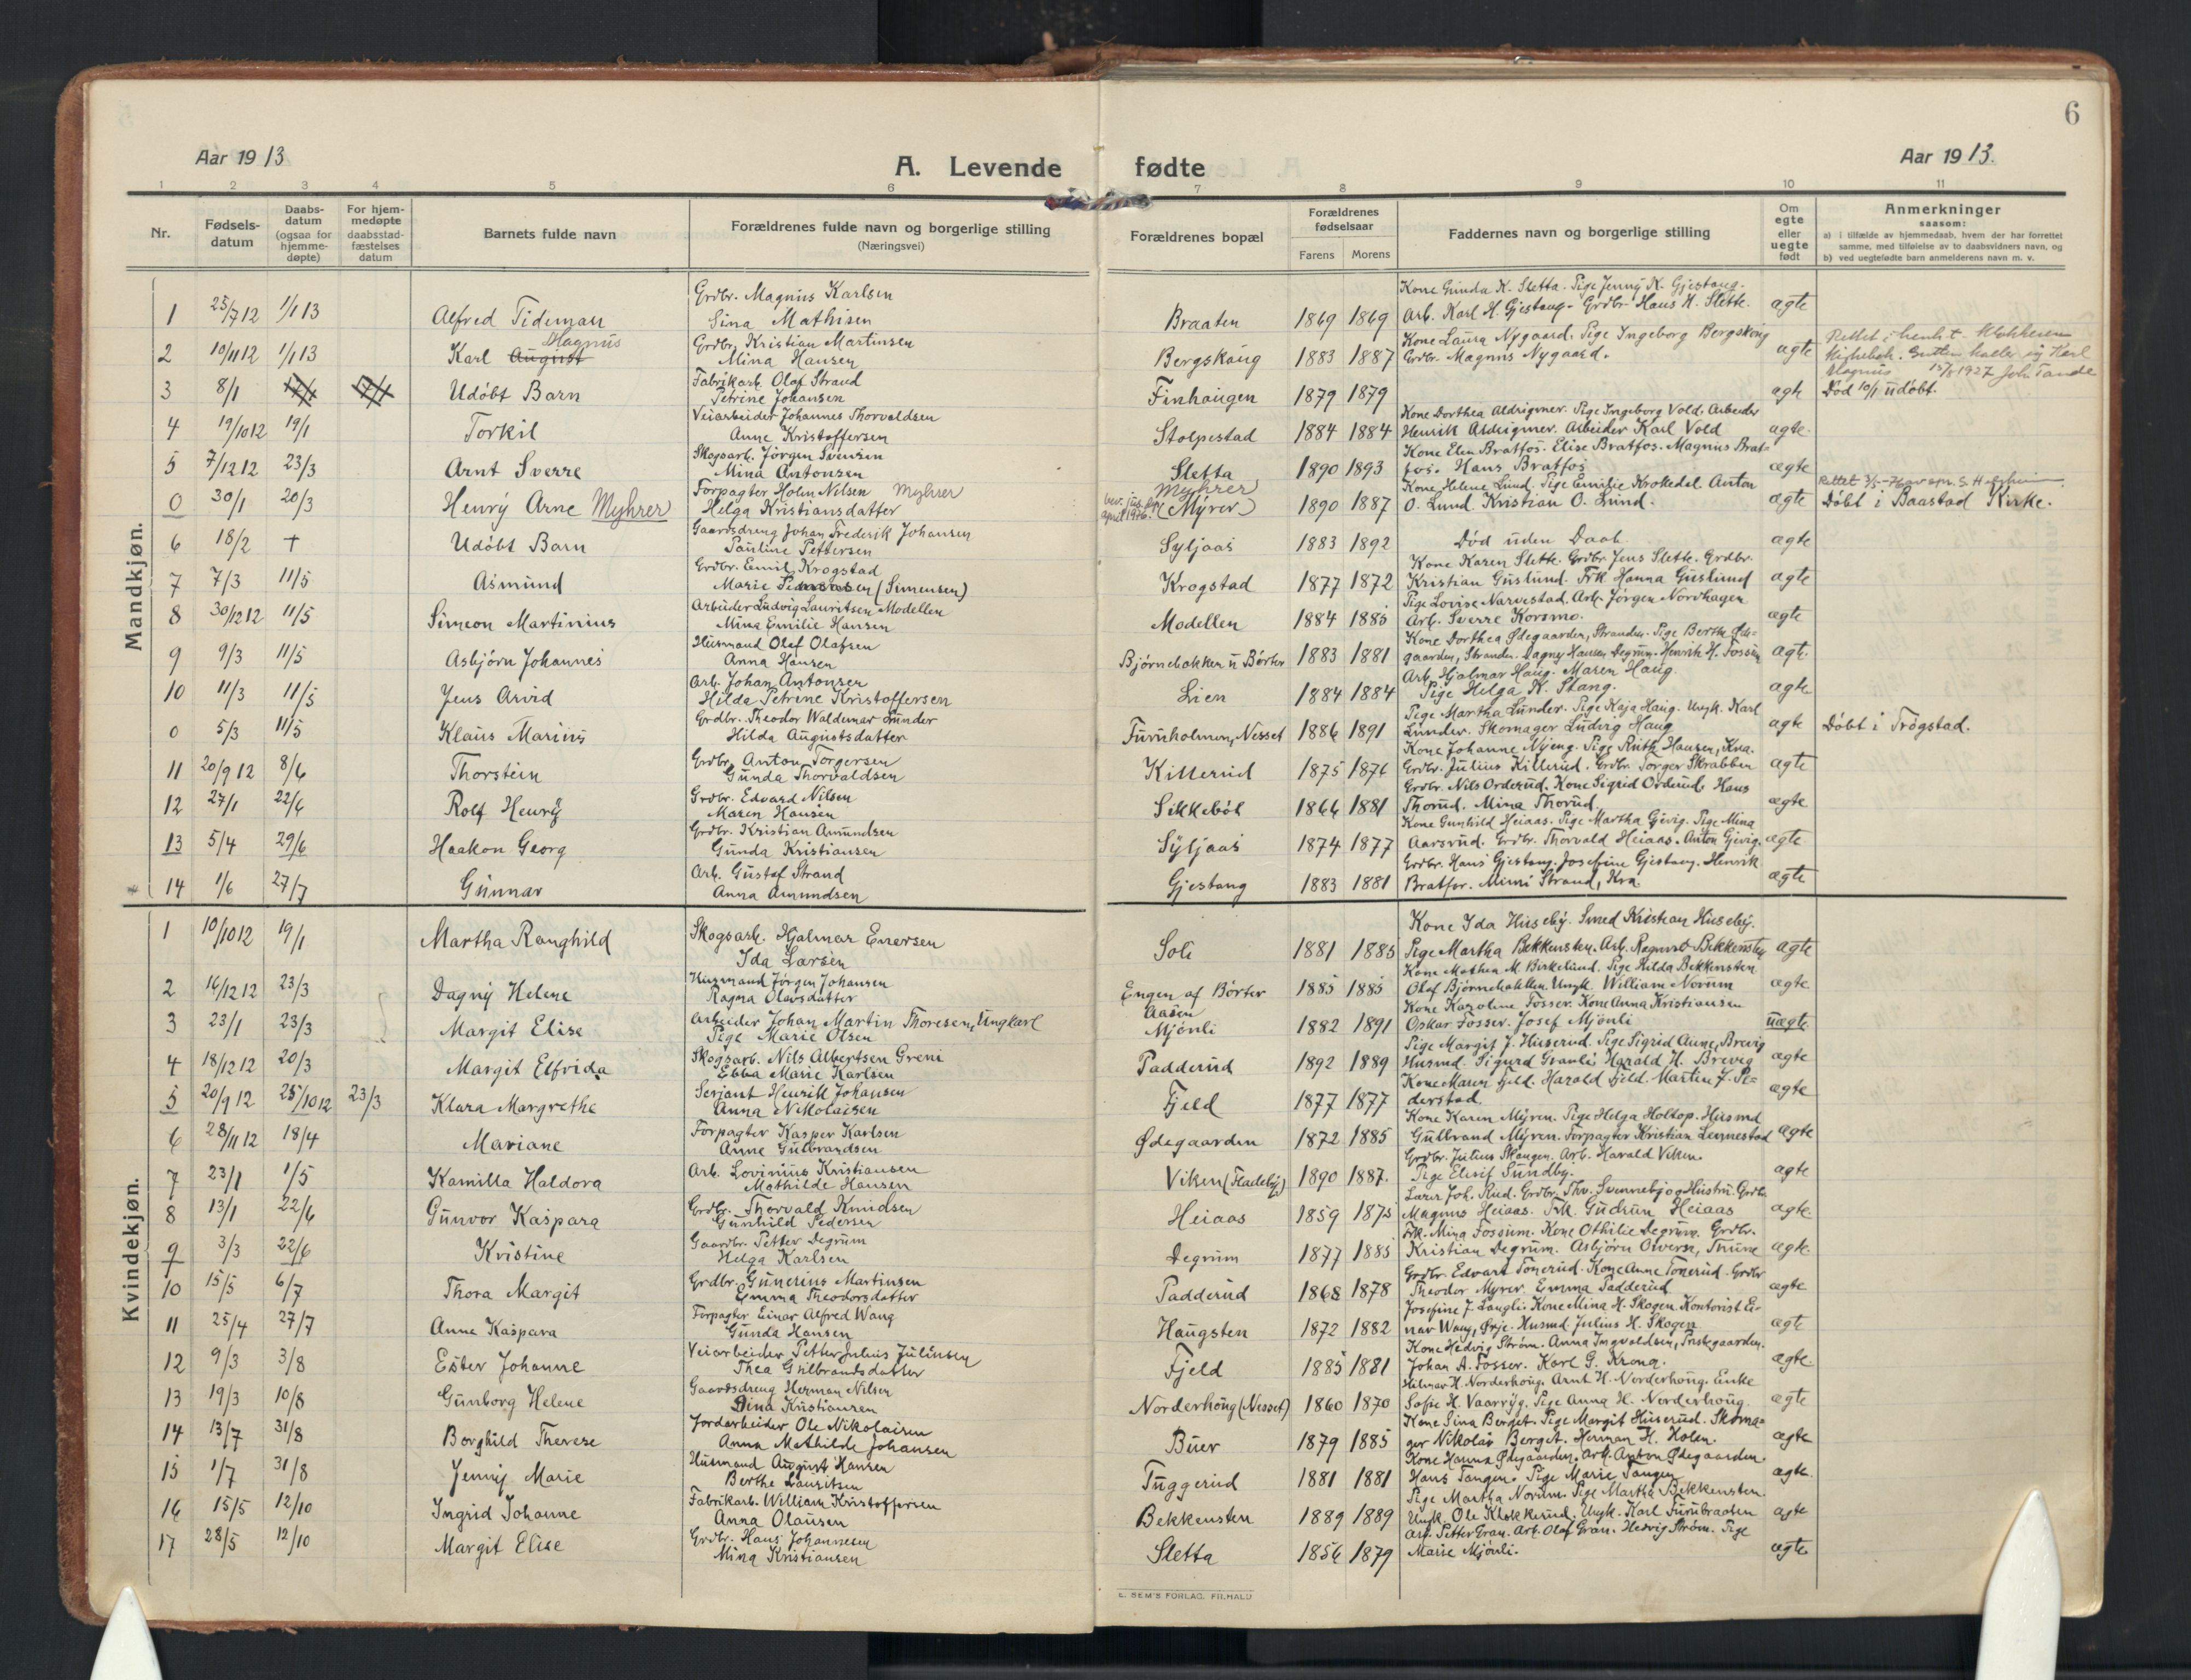 6
Aar 1913
A. Levende fødte
Aar 1913.
1 2 3 4 5 6 7 8 9 10 11
Nr.
Fødsels-
datum
Daabs-
datum
(ogsaa for
hjemme-
døpte)
For hjem-
medøpte
daabsstad-
fæstelses
datum
Barnets fulde navn
Forældrenes fulde navn og borgerlige stilling
(Næringsvei)
Forældrenes bopæl
Forældrenes
fødselsaar
Farens Morens
Faddernes navn og borgerlige stilling
Om
egte
eller
uegte
født
Anmerkninger
saasom:
a) i tilfælde av hjemmedaab, hvem der har forrettet
samme, med tilføielse av to daabsvidners navn, og
b) ved uegtefødte barn anmelderens navn m. v.
Mandkjøn.
Grdbr. Magnus Karlsen Kone Gunda K. Sletta. Pige Jenny K. Gjestang.
1 25/7 12 1/1 13 Alfred Tideman Sina Mathisen Braaten 1869 1869 Arb. Karl H. Gjestang. Grdbr. Hans H. Slette. ægte
Magnus Grdbr. Kristian Martinsen Kone Laura Nygaard. Pige Ingeborg Bergskaug
2 10/11 12 1/1 13 Karl August Mina Hansen Bergskaug 1883 1887 Grdbr. Magnus Nygaard. ægte Rettet i henh. t. Klokkerens
Gutten kaller sig Karl
Magnus 1927 Joh. Tande
Fabrikarb. Olaf Strand
3 8/1 Udöbt Barn Petrine Johansen Finhaugen 1879 1879 ægte Död 10/1 udöbt.
Veiarbeider Johannes Thorvaldsen Kone Dorthea Aldrigmer. Pige Ingeborg Vold. Arbeider
4 19/10 12 19/1 Torkil Anne Kristoffersen Stolpestad 1884 1884 Henrik Aldrigmer. Arbeider Karl Vold ægte.
Skogsarb. Jörgen Svensen Kone Elen Bratfos. Elise Bratfos. Magnus Brat-
5 7/12 12 23/3 Arnt Sverre Mina Antonsen Sletta 1890 1893 fos. Hans Bratfos ægte
Forpagter Holm Nilsen Myhrer Myhrer Kone Helene Lund. Pige Emilie Krokedal. Anton
0 30/1 20/3 Henry Arne Myhrer Helga Kristiansdatter (Myrer) 1890 1887 O. Lund. Kristian O. Lund. ægte Döbt i Baastad Kirke.
Gaardsdreng Johan Frederik Johansen
6 18/2 + Udöbt Barn Pauline Pettersen Syljaas 1883 1892 Död uden Daab ægte
Grdbr. Emil Krogstad Kone Karen Slette. Grdbr. Jens Slette. Grdbr.
7 7/3 11/5 Asmund Marie (Simensen) Krogstad 1877 1872 Kristian Guslund. Frk. Hanna Guslund ægte
Arbeider Ludvig Lauritsen Modellen Pige Lovise Narvestad. Arb. Jörgen Nordhagen
8 30/12 12 11/5 Simeon Martinius Mina Emilie Hansen Modellen 1884 1885 Arb. Sverre Korsmo. ægte
Husmand Olaf Olafsen Kone Dorthea Ødegaarden, Stranden. Pige Berthe Øde-
9 9/3 11/5 Asbjörn Johannes Anna Hansen Björnebakken u Börter 1883 1881 gaarden, Stranden. Dagny Hansen Degrum. Henrik H. Fossum ægte.
Arb. Johan Antonsen Arb. Hjalmar Haug. Maren Haug.
10 11/3 11/5 Jens Arvid Hilda Petrine Kristoffersen Lien 1884 1884 Pige Helga K. Stang. ægte
Grdbr. Theodor Waldemar Lunder Pige Martha Lunder. Pige Kaja Haug. Ungk. Karl
0 5/3 11/5 Klaus Marius Hilda Augustsdatter Furuholmen, Nesset 1886 1891 Lunder. Skomager Ludvig Haug ægte Döbt i Trögstad.
Grdbr. Anton Torgersen Kone Johanne Nyeng. Pige Ruth Hansen, Kra.
11 20/9 12 8/6 Thorstein Gunda Thorvaldsen Killerud 1875 1876 Grdbr. Julius Killerud. Grdbr. Torger Skrabben ægte
Grdbr. Edvard Nilsen Grdbr. Nils Orderud. Kone Sigrid Orderud. Hans
12 27/1 22/6 Rolf Henry Maren Hansen Sikkeböl 1866 1881 Thorud. Mina Thorud. ægte
Grdbr. Kristian Amundsen Kone Gunhild Heiaas. Pige Martha Gjevig. Pige Mina
13 5/4 29/6 Haakon Georg Gunda Kristiansen Syljaas 1874 1877 Aarsrud. Grdbr. Thorvald Heiaas. Anton Gjevig. ægte
Arb. Gustaf Strand Grdbr. Hans Gjestang. Josefine Gjestang. Henrik
14 1/6 27/7 Gunnar Anna Amundsen Gjestang 1883 1881 Bratfos. Mimi Strand, Kra. ægte
Kvindekjøn.
Skogsarb. Hjalmar Enersen Kone Ida Huseby. Smed Kristian Huseby.
1 10/10 12 19/1 Martha Ranghild Ida Larsen Soli 1881 1885 Pige Martha Bekkensten. Arb. Ragnvald Bekkensten ægte
Husmand Jörgen Johansen Kone Mathea M. Birkelund. Pige Hilda Bekkensten
2 16/12 12 23/3 Dagny Helene Ragna Olavsdatter Engen af Börter 1885 1885 Olaf Björnebakken. Ungk. William Norum ægte
Arbeider Johan Martin Thoresen, Ungkarl Aasen Kone Karoline Fosser. Kone Anna Kristiansen
3 23/1 23/3 Margit Elise Pige Marie Olsen Mjönli 1882 1891 Oskar Fosser. Josef Mjönli uægte.
Skogsarb. Nils Albertsen Greni Pige Margit J. Huserud. Pige Sigrid Aune, Brevig
4 18/12 12 20/3 Margit Elfrida Ebba Marie Karlsen Padderud 1892 1889 Husmd. Sigurd Granli. Harald H. Breveg ægte
Serjant Henrik Johansen Kone Maren Fjeld. Harald Fjeld. Martin J. Pe-
5 20/9 12 25/10 12 23/3 Klara Margrethe Anna Nikolaisen Fjeld 1877 1877 derstad. ægte
Forpagter Kasper Karlsen Kone Karen Myren. Pige Helga Holtop. Husmd
6 28/11 12 18/4 Mariane Anne Gulbrandsen Ødegaarden 1872 1885 Gulbrand Myren. Forpagter Kristian Lennestad ægte
Arb. Lovinius Kristiansen Grdbr. Julius Skaugen. Arb. Harald Viken.
7 23/1 1/5 Kamilla Haldora Mathilde Hansen Viken (Fladeby) 1890 1887. Pige Elisif Sundby. ægte
Grdbr. Thorvald Knudsen Lærer Joh. Rud. Grdbr. Thv. Svennebjo og Hustru. Grdbr.
8 13/1 22/6 Gunvor Kaspara Gunhild Pedersen Heiaas 1859 1875 Magnus Heiaas. Frk. Gudrun Heiaas ægte.
Gaardbr. Petter Degrum Frk. Mina Fossum. Kone Othilie Degrum. Grdbr.
9 3/3 22/6 Kristine Helga Karlsen Degrum 1877 1885 Kristian Degrum. Asbjörn ægte.
Grdbr. Gunerius Martinsen Grdbr. Edvart Tonerud. Kone Anne Tonerud. Grdbr
10 15/5 6/7 Thora Margit Emma Theodorsdatter Padderud 1868 1878 Theodor Myrer. Emma Padderud ægte
Forpagter Einar Alfred Wang Josefine J. Langli. Kone Mina H. Skogen. Kontorist Ei-
11 25/4 27/7 Anna Kaspara Gunda Hansen Haugsten 1872 1882 nar Wang, Ørje. Husmd. Julius H. Skogen ægte
Veiarbeider Petter Julius Julinsen Kone Hedvig Ström. Anna Ingvaldsen, Prestegaarden.
12 9/3 3/8 Ester Johanne Thea Gulbrandsdatter Fjeld 1885 1881 Johan A. Fosser. Karl G. Krona. ægte.
Gaardsdreng Herman Nilsen Hilmar H. Norderhoug. Arnt H. Norderhoug. Enke
13 19/3 10/8 Gunborg Helene Dina Kristiansen Norderhoug (Nesset) 1860 1870 Sofie H. Vaarryg. Pige Anna H. Norderhoug. ægte
Jordarbeider Ole Nikolaisen Kone Sina Berget. Pige Margit Huserud. Skoma-
14 13/7 31/8 Borghild Therese Anna Mathilde Johansen Buer 1879 1885 ger Nikolai Berget. Herman H. Holen. ægte
Husmand August Hansen Kone Hanna Ødegaarden. Arb. Anton Ødegaarden.
15 1/7 31/8 Jenny Marie Berthe Lauritsen Tuggerud 1881 1881 Hans Tangen. Pige Marie Tangen ægte.
Fabrikarb. William Kristoffersen Pige Martha Norum. Pige Martha Bekkensten.
16 15/5 12/10 Ingrid Johanne Anna Olausen Bekkensten 1889 1889 Ungk. Ole Klokkerud. Ungk. Karl Furubraaten ægte
Grdbr. Hans Johannesen Arb. Petter Gran. Arb. Olaf Gran. Hedvig Ström. Pige
17 28/5 12/10 Margit Elise Mina Kristiansen Sletta 1856 1879 Marie Mjönli. ægte
E. SEM'S FORLAG, FR.HALD